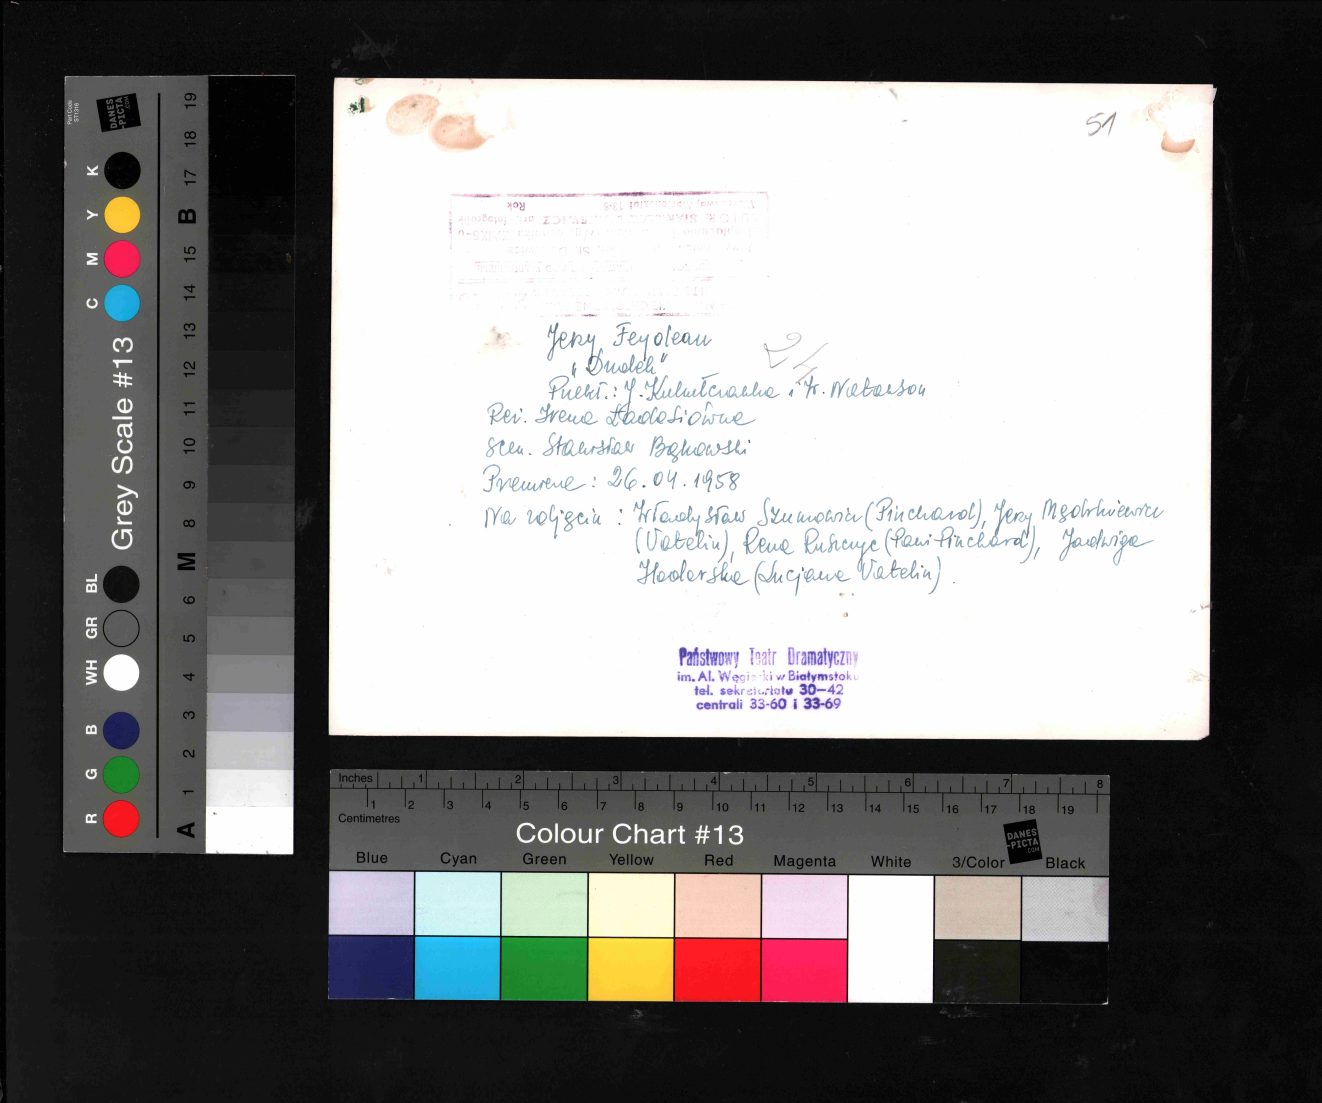 Part Code
ST1316
DANES
-PICTA
.COM
Grey Scale #13
R G B WH GR BL C M Y K
A 1 2 3 4 5 6 M 8 9 10 11 12 13 14 15 B 17 18 19
51
Rok
Jerzy Feydeau
„Dudek"
Przekł.: J. i W. Natanson
Reż. Irena Ładosiówna
Scen. Stanisław Bąkowski
Premiera: 26.04.1958
Na zdjęciu: Władysław Szumowicz (Pinchard), Jerzy
(Vatelin), Rena Ruszczyc (Pani Pinchard), Jadwiga
(Lucjana Vatelin).
Państwowy Teatr Dramatyczny
im. Al. Węgierki w Białymstoku
tel. sekretariatu 30—42
centrali 33-60 i 33-69
Inches 1 2 3 4 5 6 7 8
1 2 3 4 5 6 7 8 9 10 11 12 13 14 15 16 17 18 19
Centimetres
Colour Chart #13
DANES
-PICTA
.COM
Blue Cyan Green Yellow Red Magenta White 3/Color Black